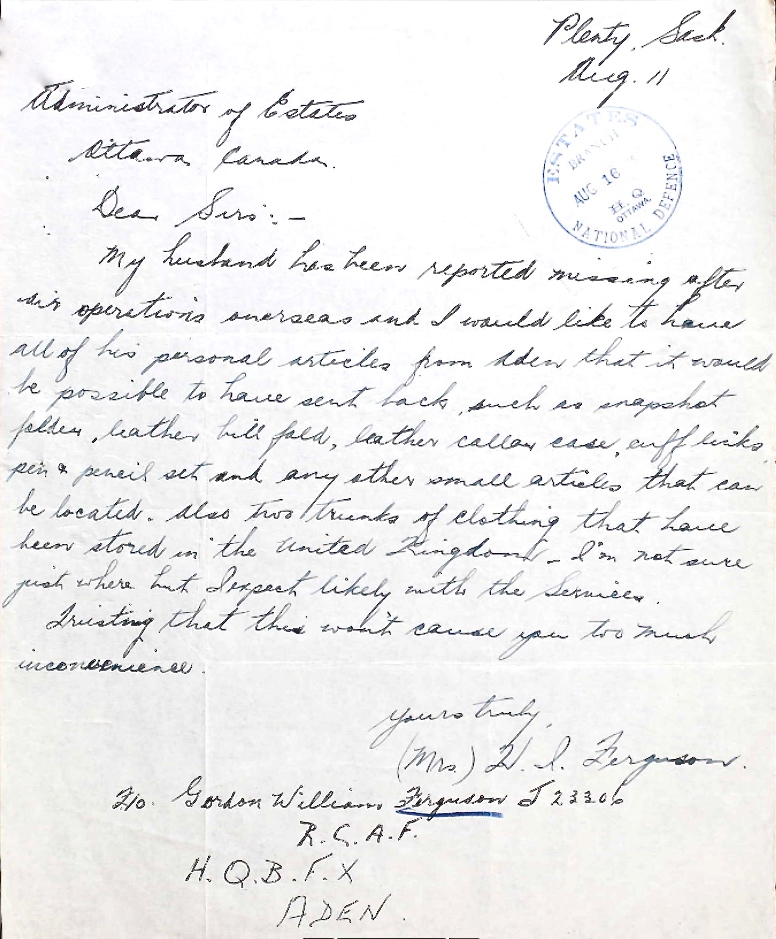 Plenty, Sask.
Aug. 11
Administrator of Estates
Ottawa Canada.
ESTATES
BRANCH
AUG 16
H.Q.
OTTAWA.
NATIONAL DEFENCE
Dear Sirs:-
My husband has been reported missing after
air operations overseas and I would like to have
all of his personal articles from Aden that it would
be possible to have sent back, such as snapshot
folder, leather bill fold, leather collar case, cuff links,
pen & pencil set and any other small articles that can
be located. Also two trunks of clothing that have
been stored in the United Kingdom - I'm not sure
just where but I expect likely with the Services.
Trusting that this won't cause you too much
inconvenience.
Yours truly,
(Mrs.) Ferguson.
F/O. Gordon William Ferguson J 23306
R.C.A.F.
H.Q.B.F.X
ADEN.